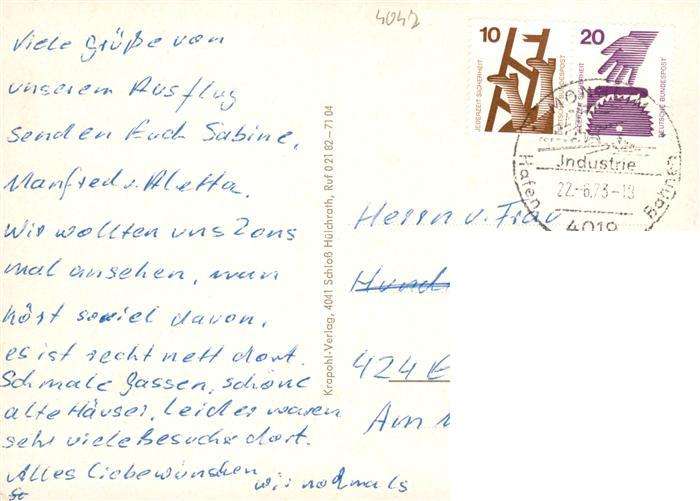 4042
Viele Grüße von
unserem Ausflug
senden Euch Sabine,
Manfred u. Aletta.
Wir wollten uns Zons
mal ansehen, man
hört soviel davon,
es ist recht nett dort.
Schmale Gassen, schöne
alte Häuser, leider waren
sehr viele Besucher dort.
Alles Liebe wünschen
wir nochmals
Krapohl-Verlag, 4041 Schloß Hülchrath, Ruf 0 21 82 - 71 04
10
JEDERZEIT SICHERHEIT
DEUTSCHE BUNDESPOST
20
DEUTSCHE BUNDESPOST
Industrie
Hafen
Bahnen
22.-6.73-13
4019
Herrn u. Frau
424 E
Am